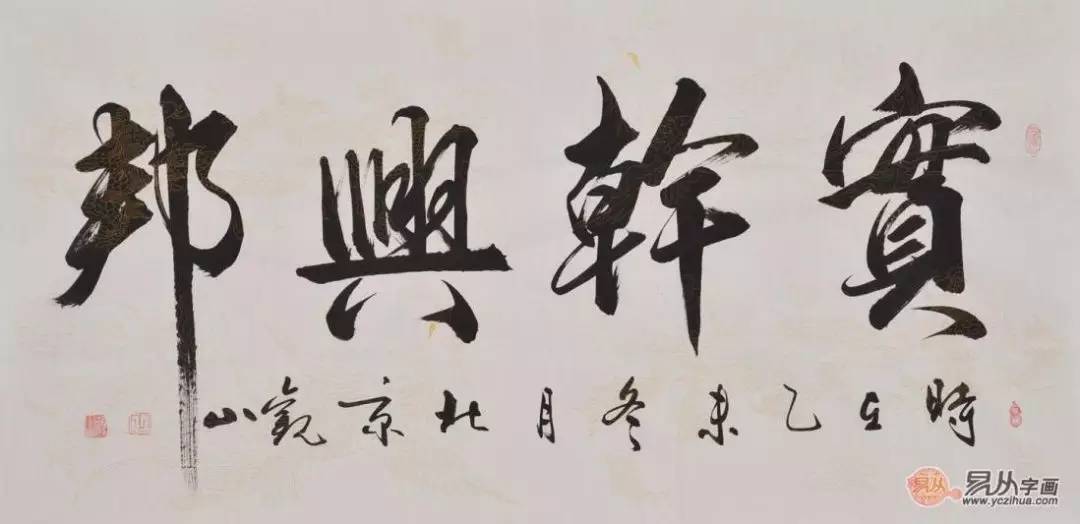 實幹興邦
時在乙未冬月北京觀山
易从
易从字画
www.yczihua.com